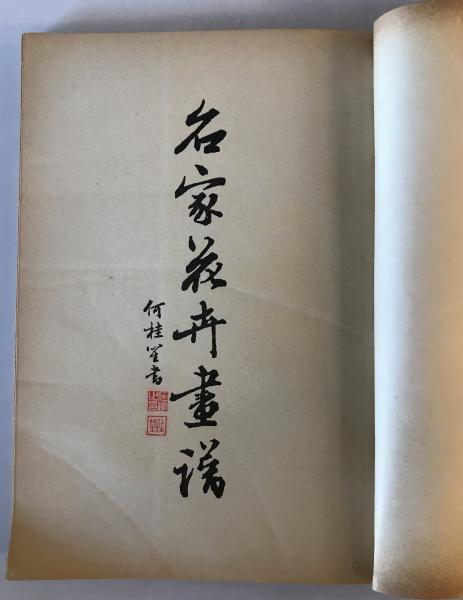 名家花卉畫譜
何桂笙書